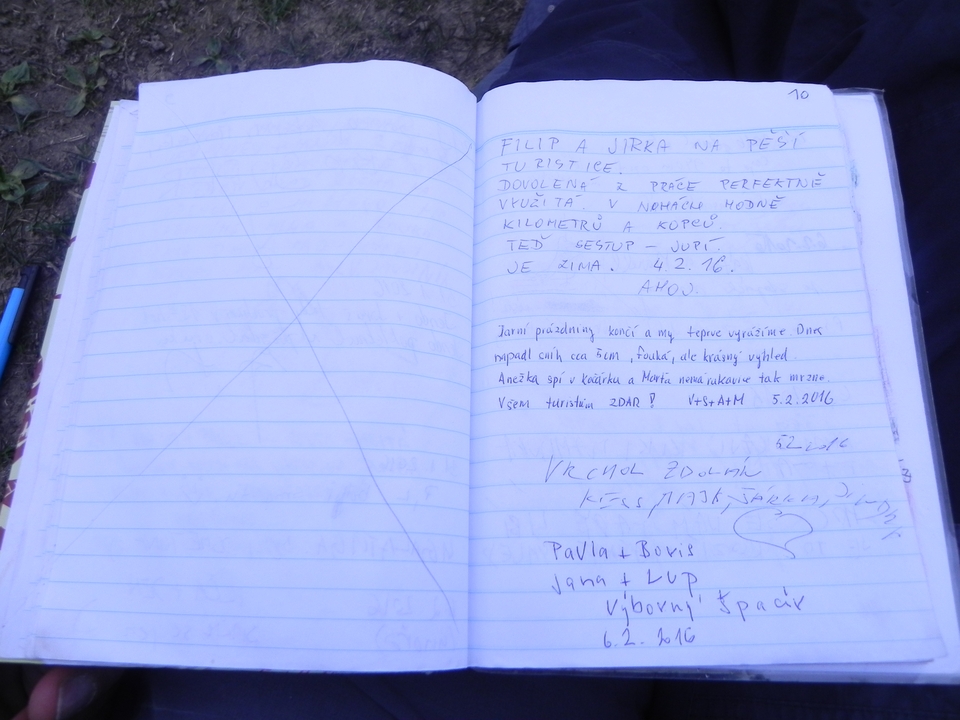 10
FILIP A JIRKA NA PĚŠÍ
TURISTICE.
DOVOLENÁ Z PRÁCE PERFEKTNĚ
VYUŽITÁ. V NOHÁCH HODNĚ
KILOMETRŮ A KOPCŮ.
TEĎ SESTUP – JUPÍ.
JE ZIMA. 4.2.16.
AHOJ.
Jarní prázdniny končí a my teprve vyrážíme. Dnes
napadl sníh cca 5cm, fouká, ale krásný výhled.
Anežka spí v kočárku a Marta nemá rukavice tak mrzne.
Všem turistům ZDAR! V+S+A+M 5.2.2016
VRCHOL ZDOLÁN
Pavla + Boris
Jana + Lup
Výborný špacír
6.2. 2016